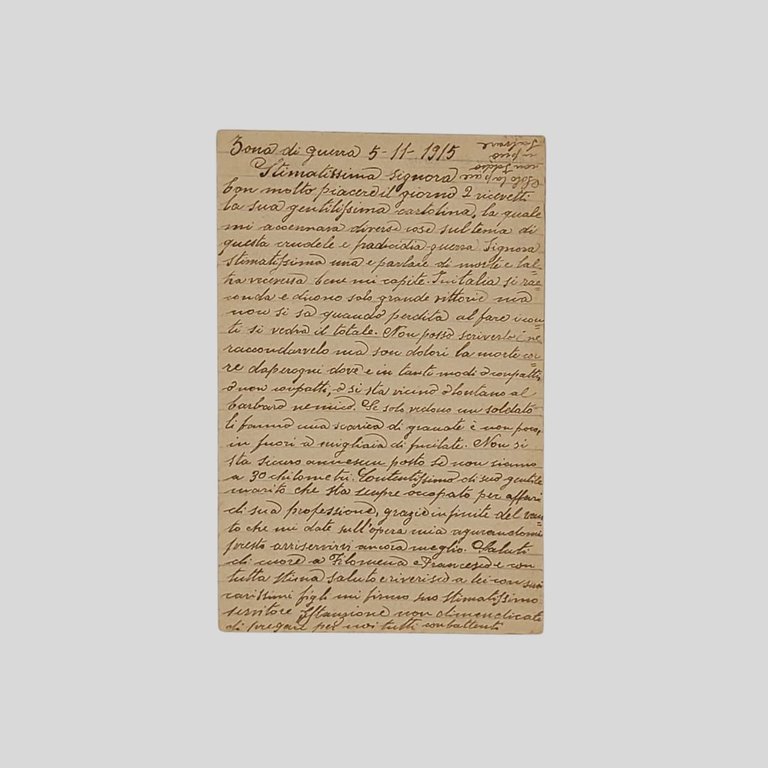 Zona di guerra 5-11-1915
Stimatissima signora
Con molto piacere il giorno 2 ricevetti
la sua gentilissima cartolina, la quale
mi accennava diverse cose sul tema di
questa crudele e guerra Signora
stimatissima una e parlare di morte e l'al=
tra viceversa bene mi capite. In italia si rac=
conda e dicono solo grande vittorie ma
non si sa quando perdita al fare i con=
ti si vedra il totale. Non posso scriverlo e ne
raccondarvelo ma son dolori la morte cor=
re da per ogni dove e in tante modi o conpatti,
o non conpatti, o si sta vicino o lontano al
barbaro nemico. Se solo vedono un soldato
li fanno una scarica di granate e non poco,
in fuori a migliaia di fucilate. Non si
sta sicuro annesun posto se non siamo
a 30 chilometri. Contentissimo di suo gentile
marito che sta sempre occopato per affari
di sua professione, grazie infinite del van=
to che mi date sull'opera mia agurandomi
presto arriservirvi ancora meglio. Saluti
di cuore a Filomena e Francesco e con
tutta stima saluto e riverisco a lei con suoi
carissimi figli mi firmo suo stimatissimo
servitore non dimendicate
di pregare per noi tutti conbattenti
Solo la pace
non
in pace